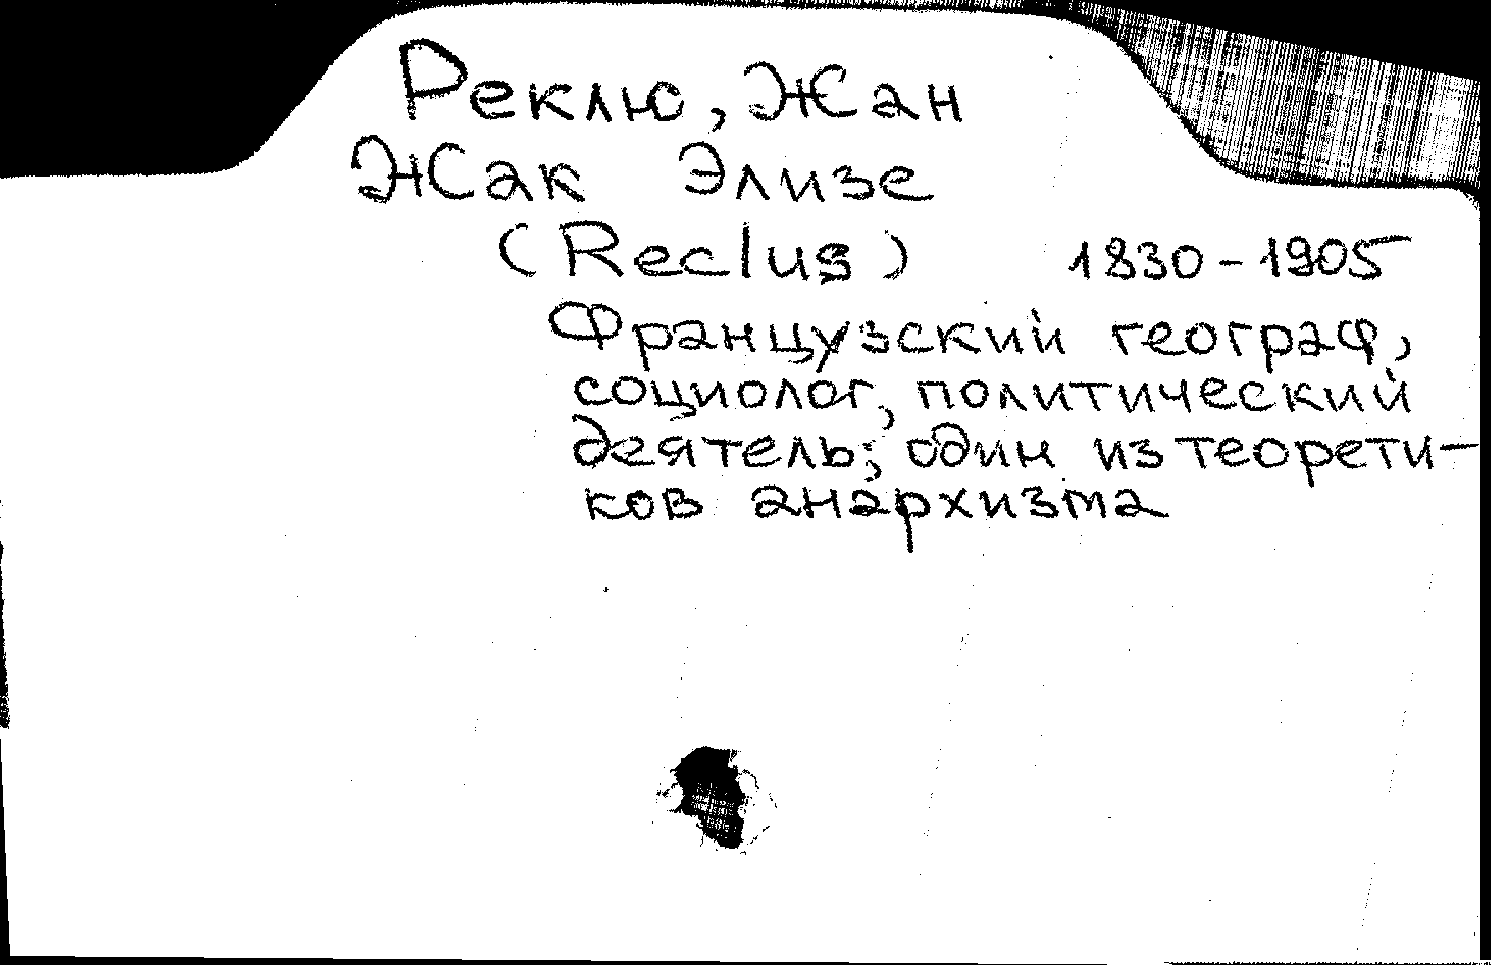 Реклю, Жан
Жак Элизе
(Reclus) 1830-1905
Французский географ,
социолог, политический
деятель; один из теорети-
ков анархизма